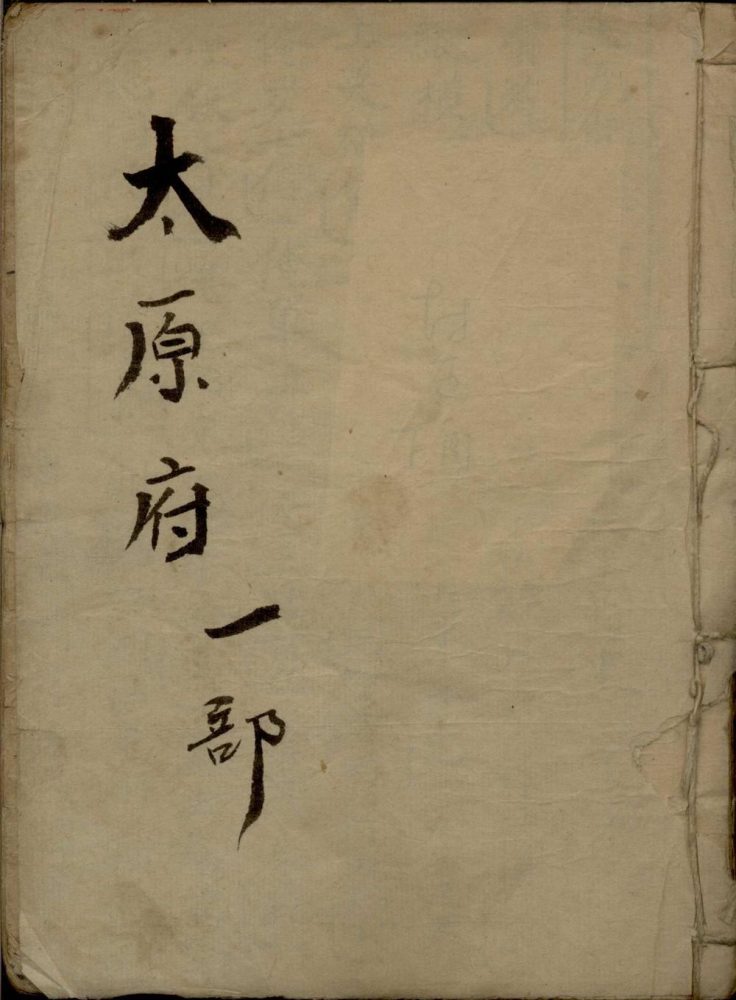 太原府
一部